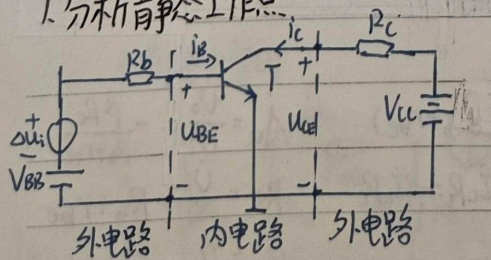 1.分析静态工作点
Rb
iB
iC
Rc
+
+
+
T
Δui
UBE
UCE
VCC
-
VBB
-
-
外电路
内电路
外电路